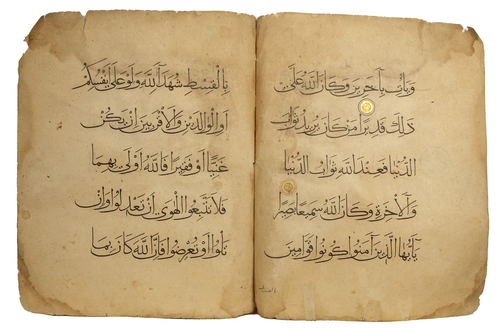 ويأت بآخرين وكان الله على
ذلك قديرا من كان يريد ثواب
الدنيا فعند الله ثواب الدنيا
والآخرة وكان الله سميعا بصيرا
يأيها الذين آمنوا كونوا قوامين
بالقسط شهدآء لله ولو على أنفسكم
أو الوالدين والأقربين إن يكن
غنيا أو فقيرا فالله أولى بهما
فلا تتبعوا الهوى أن تعدلوا وإن
تلوا أو تعرضوا فإن الله كان بما